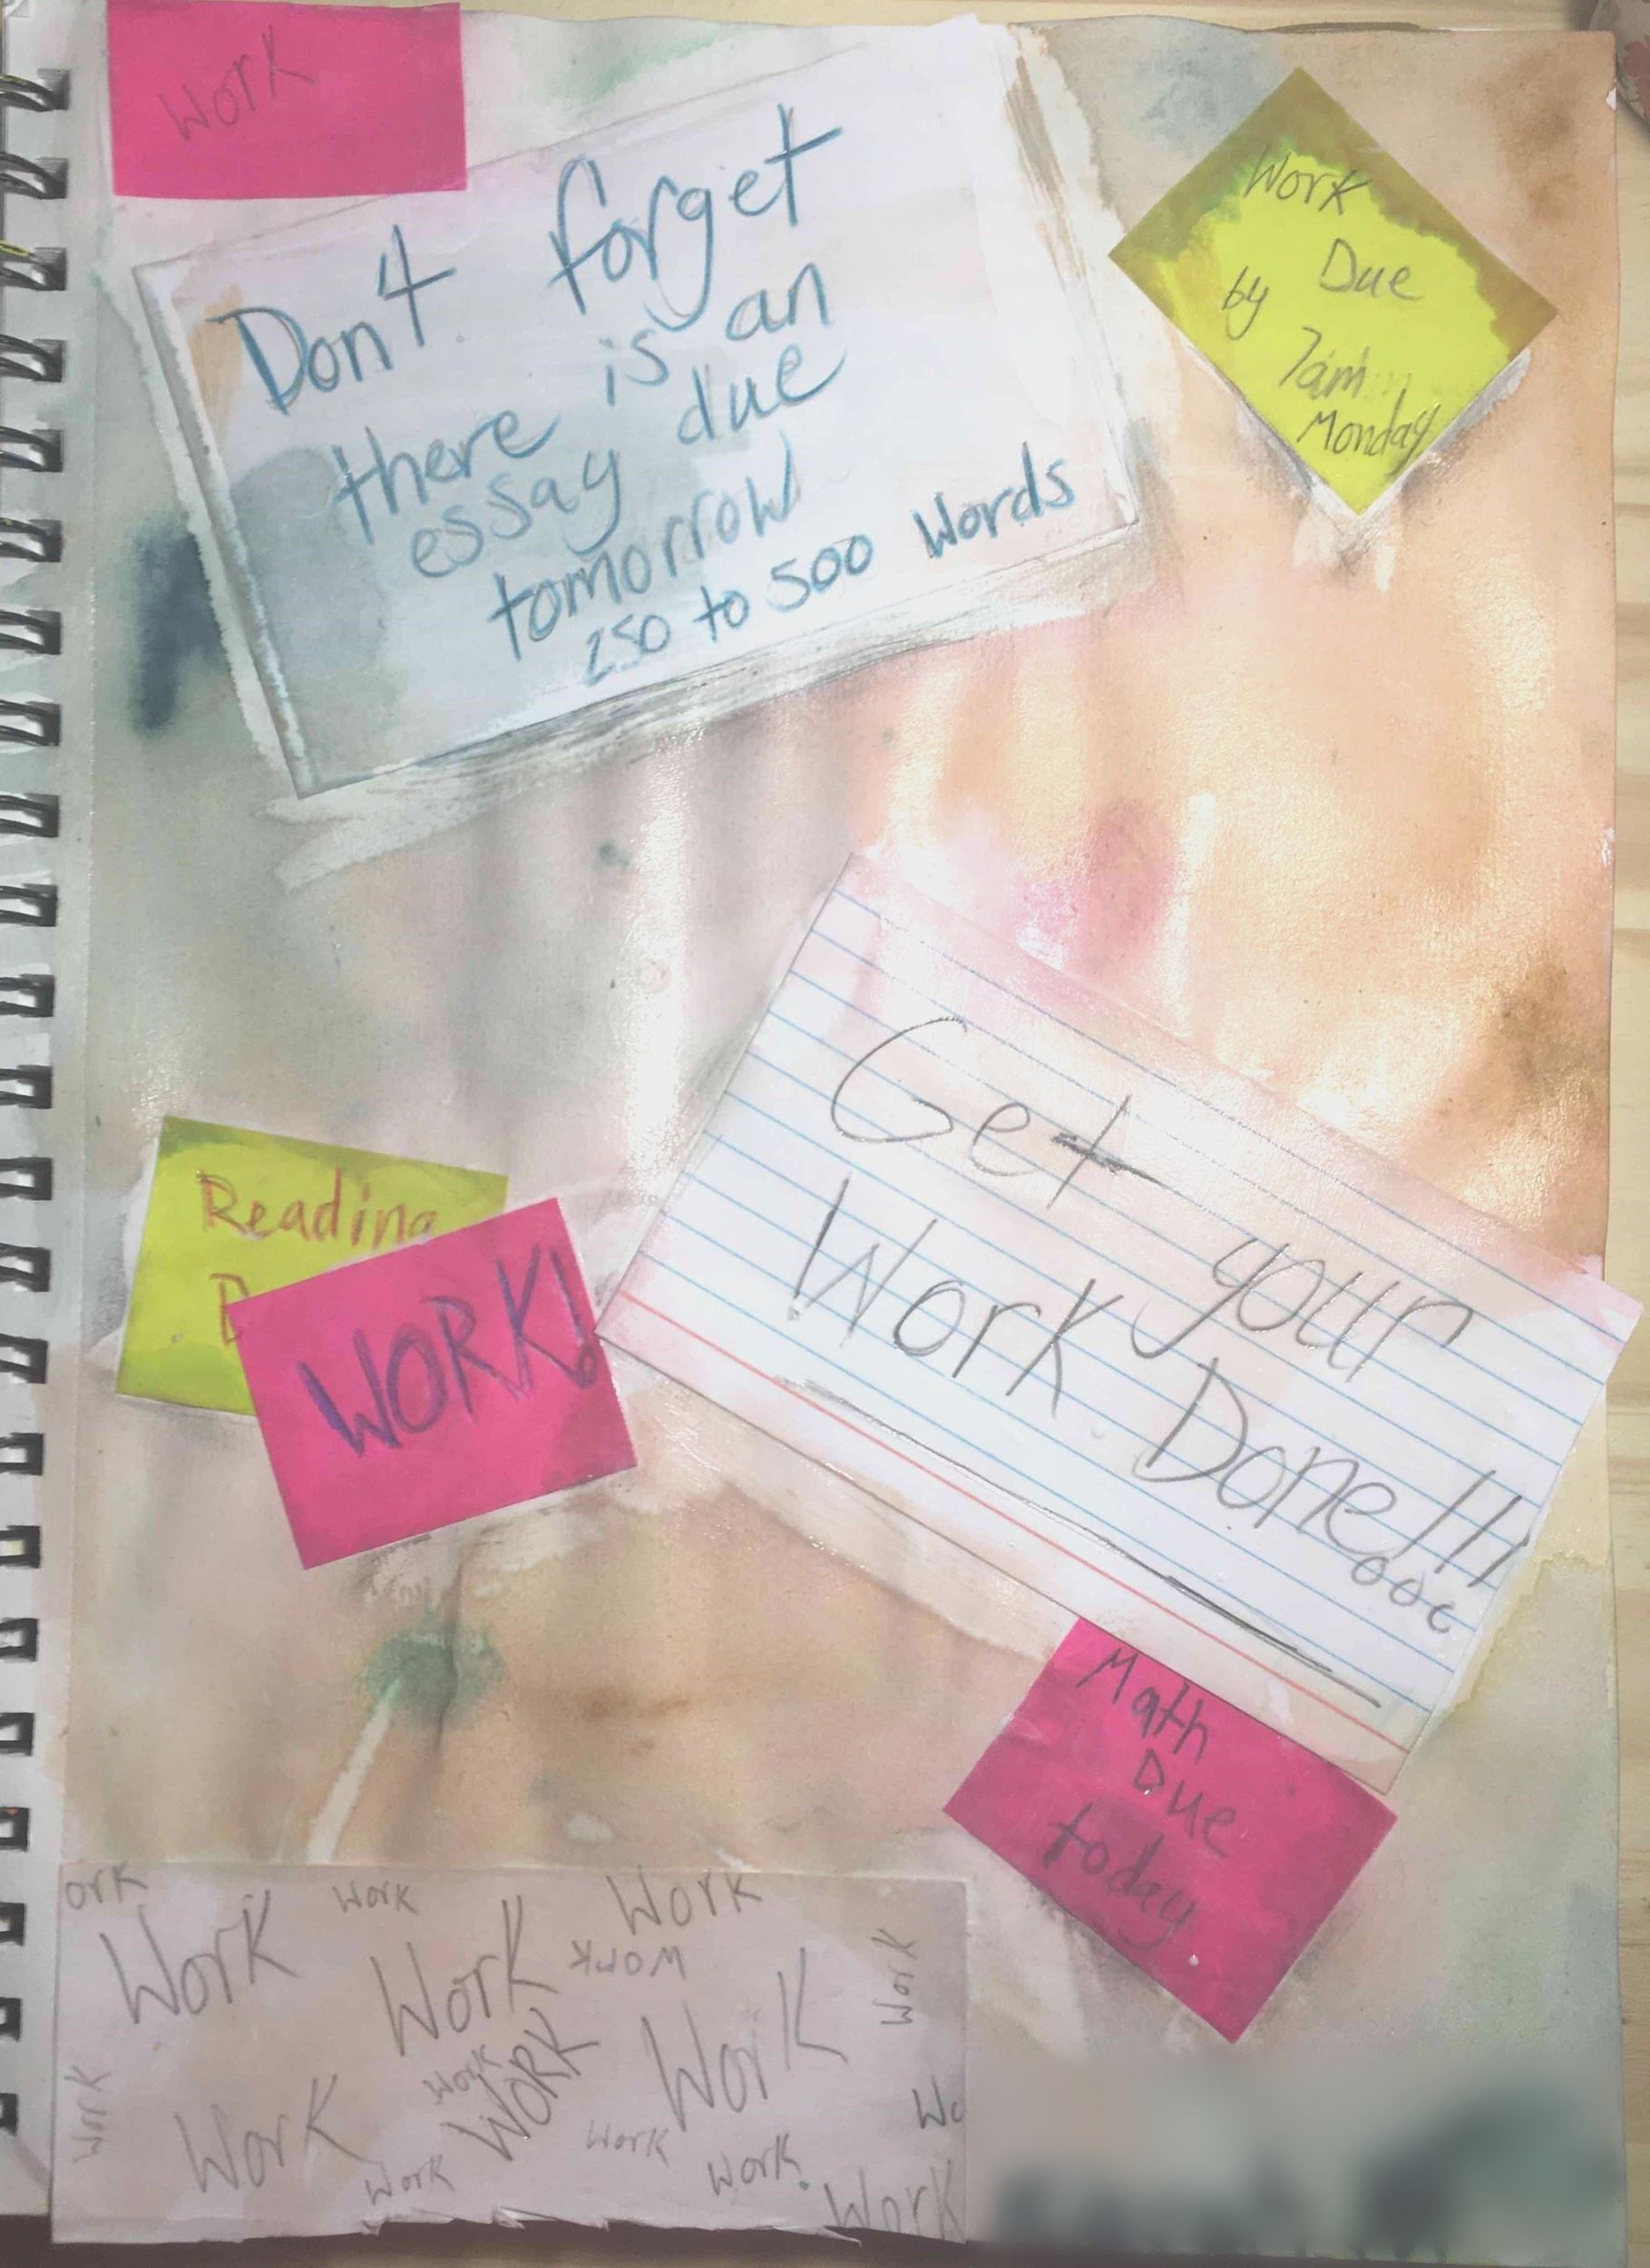 Work
Don't forget
there is an
essay due
tomorrow
250 to 500 Words
Work
Due
by
7am
Monday
Get your
Work Done!!!
Reading
D
WORK!
Math
Due
today
ork
Work
Work
Work
Work
Work
Work
Work
Work
Work
WORK
Work
Wo
Work
Work
Work
Work
Work
Work